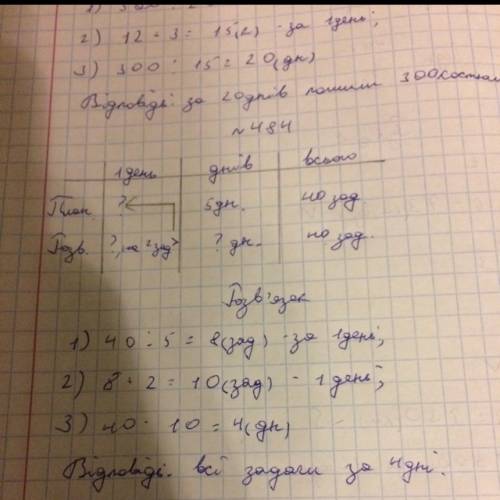 2) 12 + 3 = 15(2) - за 1день;
3) 300 : 15 = 20 (дн)
Відповідь: за 20днів пошили 300костюм
№484
1день днів всього
План. ? 5дн. 40 зад.
Розв. ?, на 2зад> ? дн. 40 зад.
Розв'язок
1) 40 : 5 = 8(зад) - за 1день;
2) 8 + 2 = 10(зад) - 1день;
3) 40 : 10 = 4(дн)
Відповідь: всі задачі за 4дні.